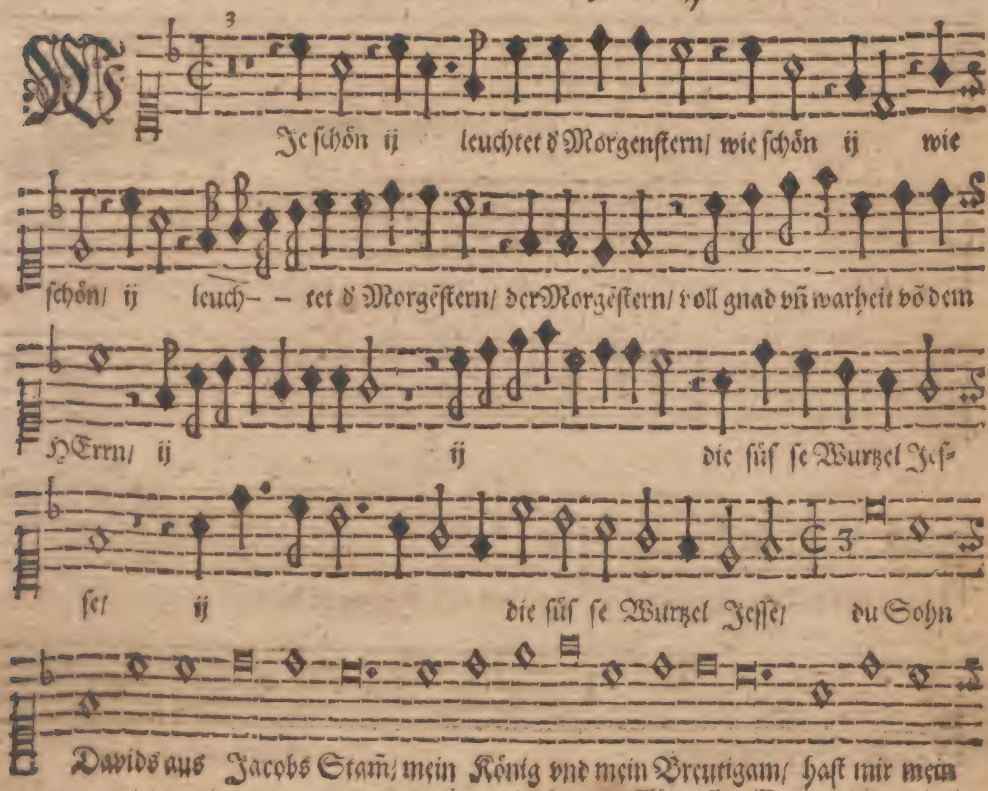 3
WJe schön ij leuchtet d' Morgenstern/ wie schön ij wie
schön/ ij leuch- - tet d' Morgēstern/ der Morgēstern/ voll gnad vñ warheit võ dem
HErrn/ ij ij die süs se Wurtzel Jes-
se/ ij die süs se Wurtzel Jesse/ du Sohn
3
Davids aus Jacobs Stam̃/ mein König vnd mein Breutigam/ hast mir mein